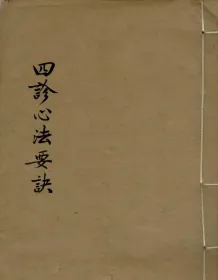 四診心法要訣